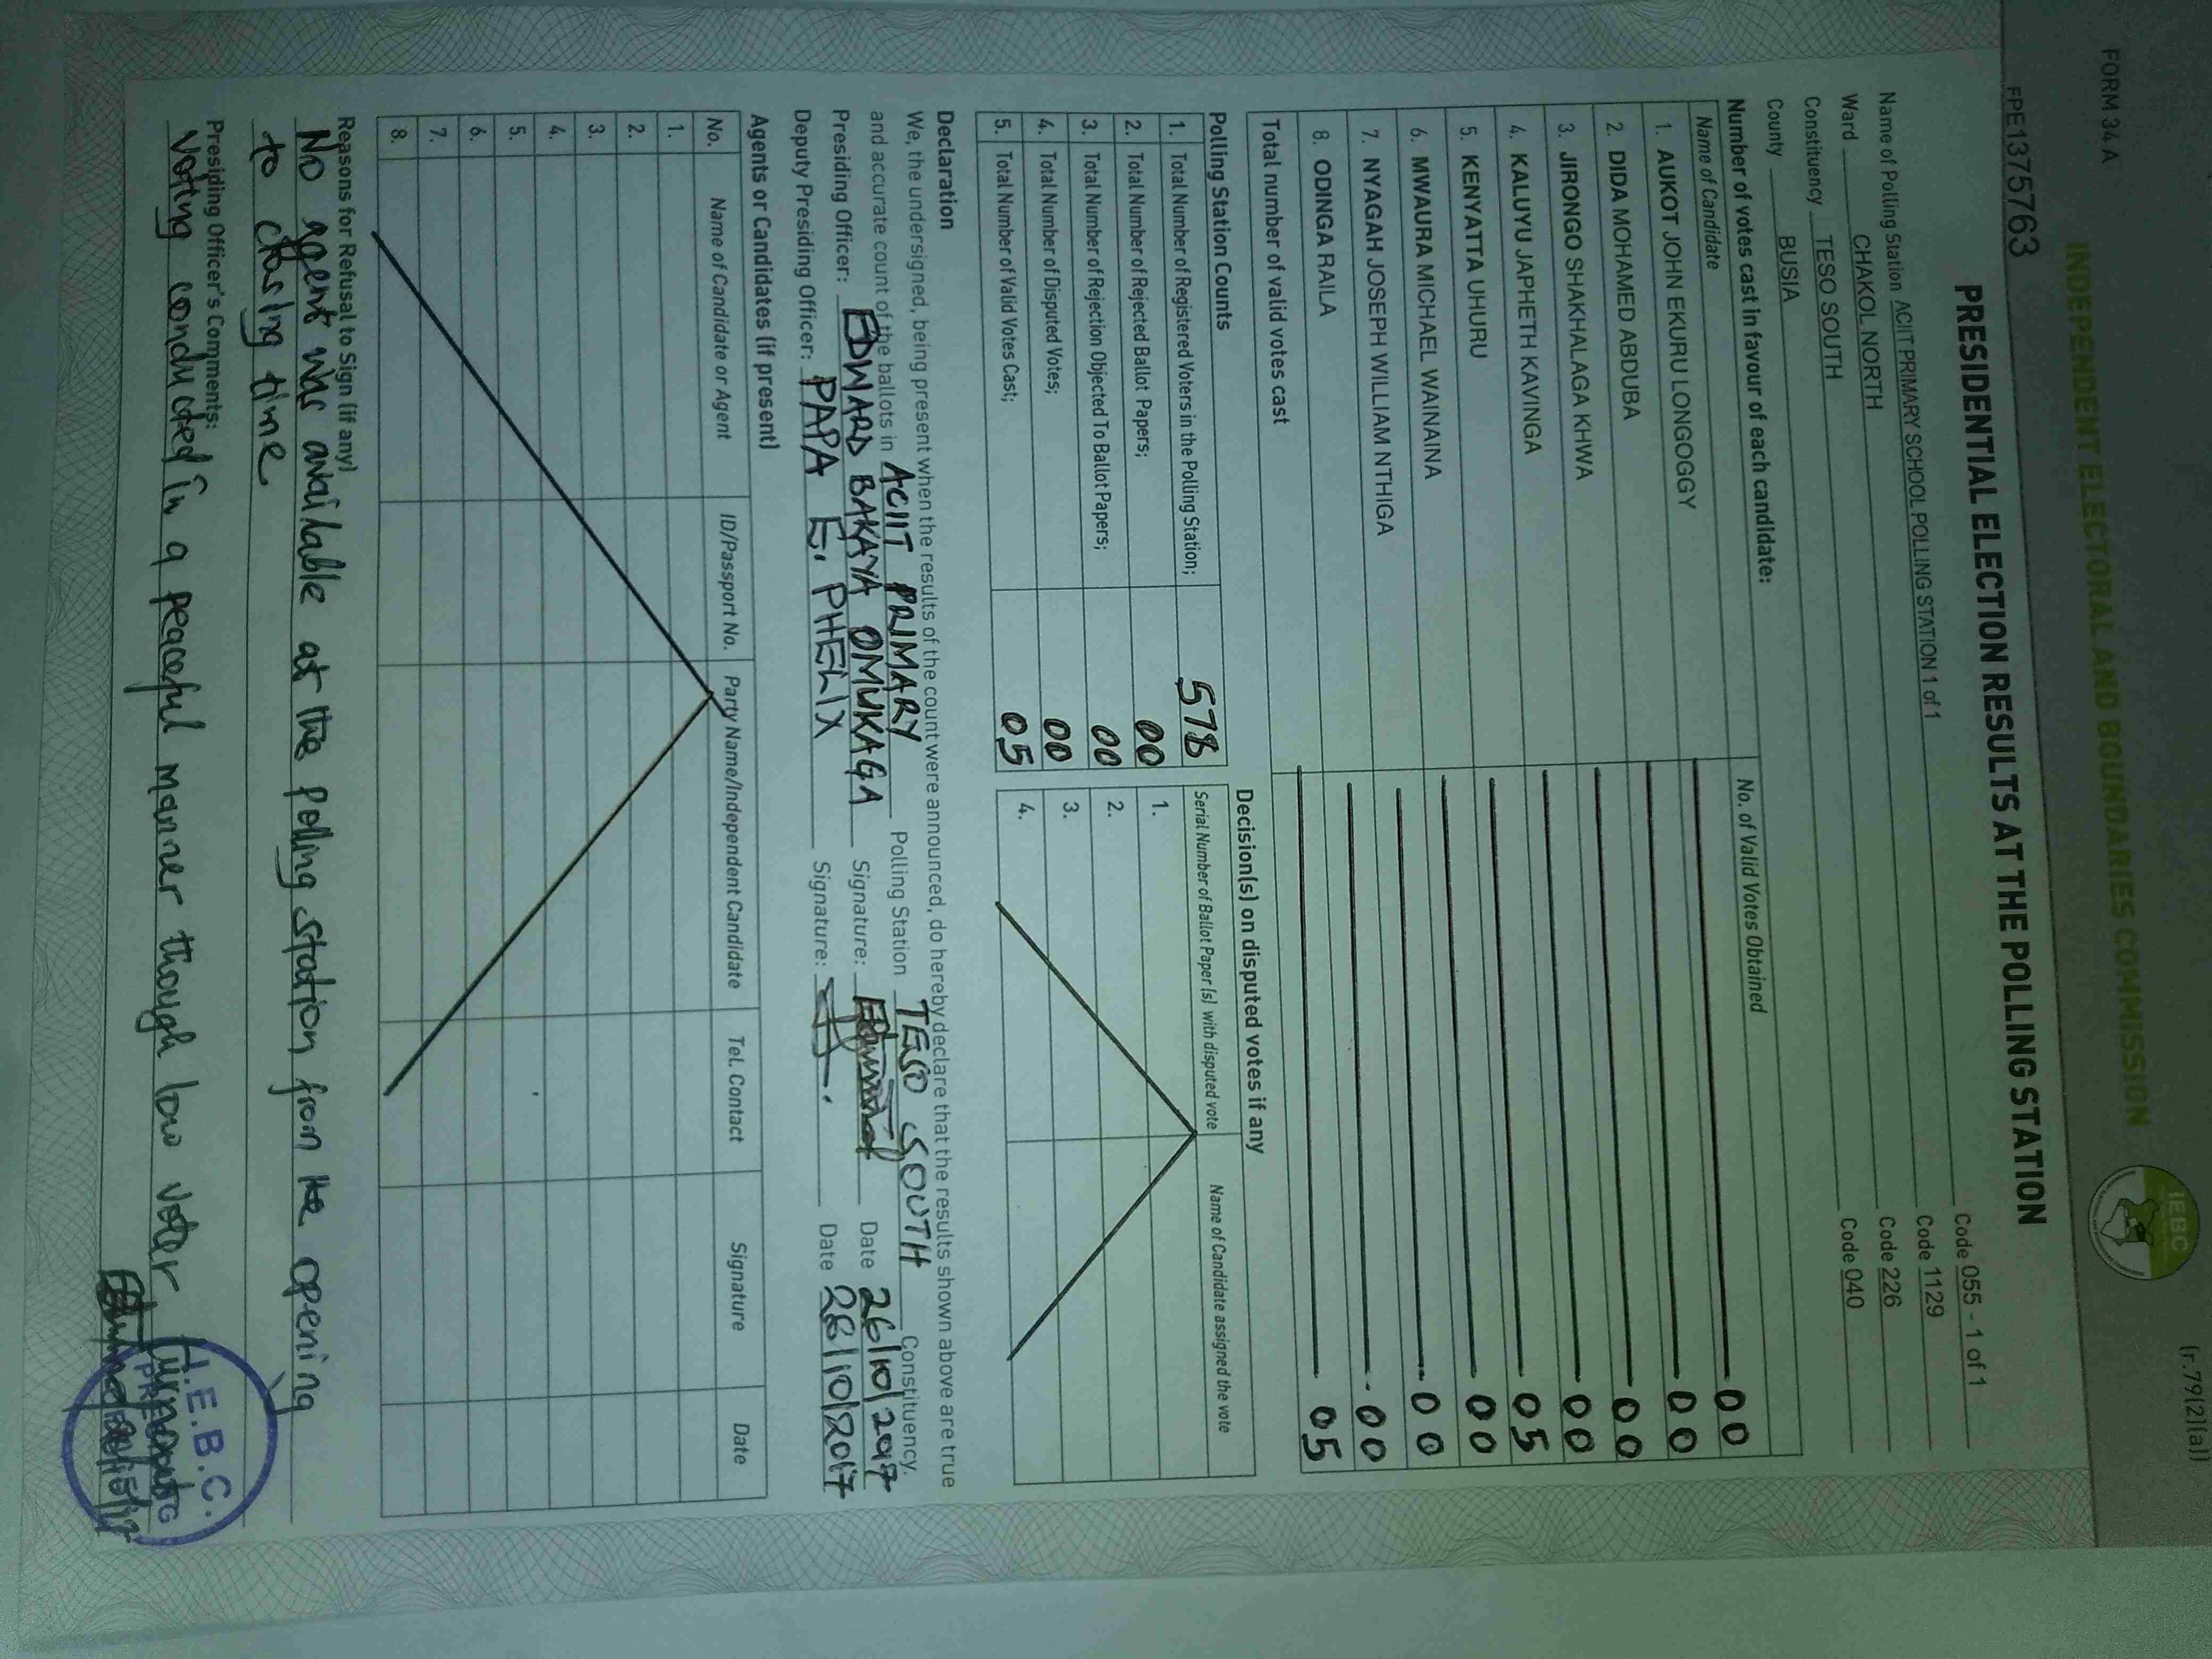 (r.79(2)(a))
FORM 34 A
INDEPENDENT ELECTORAL AND BOUNDARIES COMMISSION
IEBC
FPE1375763
PRESIDENTIAL ELECTION RESULTS AT THE POLLING STATION
Name of Polling Station ACIIT PRIMARY SCHOOL POLLING STATION 1 of 1 Code 055 - 1 of 1
Ward CHAKOL NORTH Code 1129
Constituency TESO SOUTH Code 226
County BUSIA Code 040
Number of votes cast in favour of each candidate:
Name of Candidate No. of Valid Votes Obtained
1. AUKOT JOHN EKURU LONGOGGY 00
2. DIDA MOHAMED ABDUBA 00
3. JIRONGO SHAKHALAGA KHWA 00
4. KALUYU JAPHETH KAVINGA 00
5. KENYATTA UHURU 05
6. MWAURA MICHAEL WAINAINA 00
7. NYAGAH JOSEPH WILLIAM NTHIGA 00
8. ODINGA RAILA 00
Total number of valid votes cast 05
Polling Station Counts
1. Total Number of Registered Voters in the Polling Station; 578
2. Total Number of Rejected Ballot Papers; 00
3. Total Number of Rejection Objected To Ballot Papers; 00
4. Total Number of Disputed Votes; 00
5. Total Number of Valid Votes Cast; 05
Decision(s) on disputed votes if any
Serial Number of Ballot Paper (s) with disputed vote Name of Candidate assigned the vote
1.
2.
3.
4.
Declaration
We, the undersigned, being present when the results of the count were announced, do hereby declare that the results shown above are true
and accurate count of the ballots in ACIIT PRIMARY Polling Station TESO SOUTH Constituency.
Presiding Officer: EDWARD BAKAYA OMUKAGA Signature: Date 26/10/2017
Deputy Presiding Officer: PAPA E. PHELIX Signature: Date 26/10/2017
Agents or Candidates (if present)
No. Name of Candidate or Agent ID/Passport No. Party Name/Independent Candidate Tel. Contact Signature Date
1.
2.
3.
4.
5.
6.
7.
8.
Reasons for Refusal to Sign (if any)
No agent was available at the polling station from the opening
to closing time
Presiding Officer's Comments:
Voting conducted in a peaceful manner though low voter turnout
I.E.B.C.